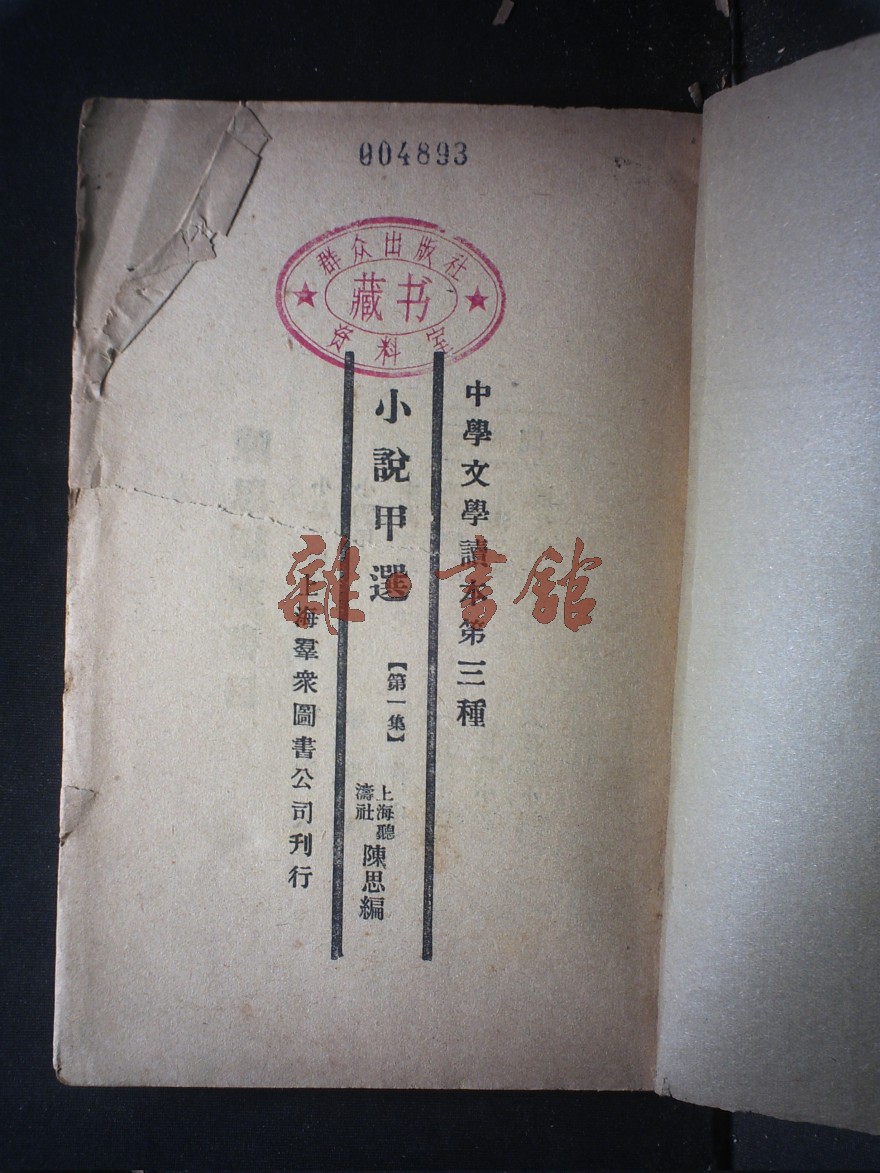 004893
群众出版社
藏书
资料室
中學文學讀本第三種
小說甲選
【第一集】
上海聽
濤社
陳思編
上海羣衆圖書公司刊行
雜·書館